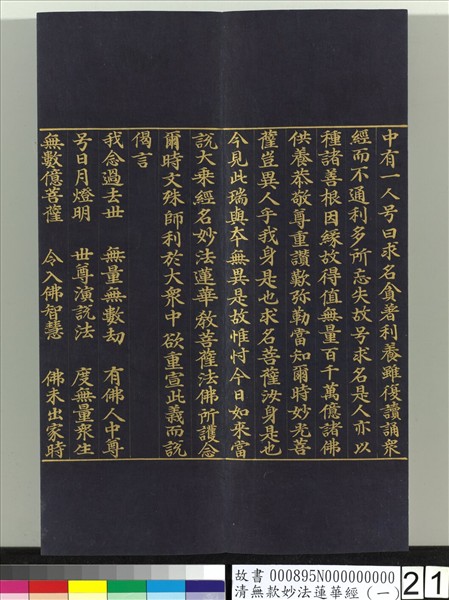 中有一人号曰求名貪著利養雖復讀誦衆
經而不通利多所忘失故号求名是人亦以
種諸善根因緣故得值無量百千萬億諸佛
供養恭敬尊重讃歎弥勒當知爾時妙光菩
薩豈異人乎我身是也求名菩薩汝身是也
今見此瑞與本無異是故惟忖今日如來當
說大乘經名妙法蓮華教菩薩法佛所護念
爾時文殊師利於大衆中欲重宣此義而說
偈言
我念過去世　無量無數劫　有佛人中尊
号日月燈明　世尊演說法　度無量衆生
無數億菩薩　令入佛智慧　佛未出家時
故書 000895N000000000
清無款妙法蓮華經（一）
21